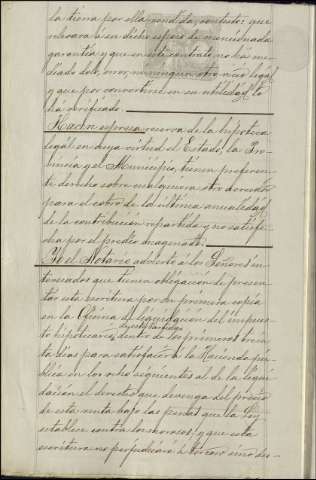 la tierra por ella vendida, contesta: que
renuncia á su dicho
garantía y que en este contrato no ha me-
diado dolo, error, ni ningun otro vicio legal
y que por convertirse en su utilidad, lo
ha otorgado.
Hacen expresa reserva de la hipoteca
legal en cuya virtud el Estado, la Pro-
vincia y el Municipio, tienen preferen-
te derecho sobre cualquiera otro acreedor
para el cobro de la última anualidad
de la contribución repartida y no satisfe-
cha por el predio enagenado.
Yo el Notario advierto á los Señores in-
teresados que tienen obligación de presen-
tar esta escritura por su primera copia
en la Oficina de liquidación del impues-
to hipotecario, dentro de los primeros trein-
ta dias para satisfacer á la Hacienda pú-
blica en los ocho siguientes al de la liqui-
dación el derecho que devenga del precio
de esta venta bajo las penas que la Ley
establece contra los morosos; y que esta
escritura no perjudicará á tercero sino des-